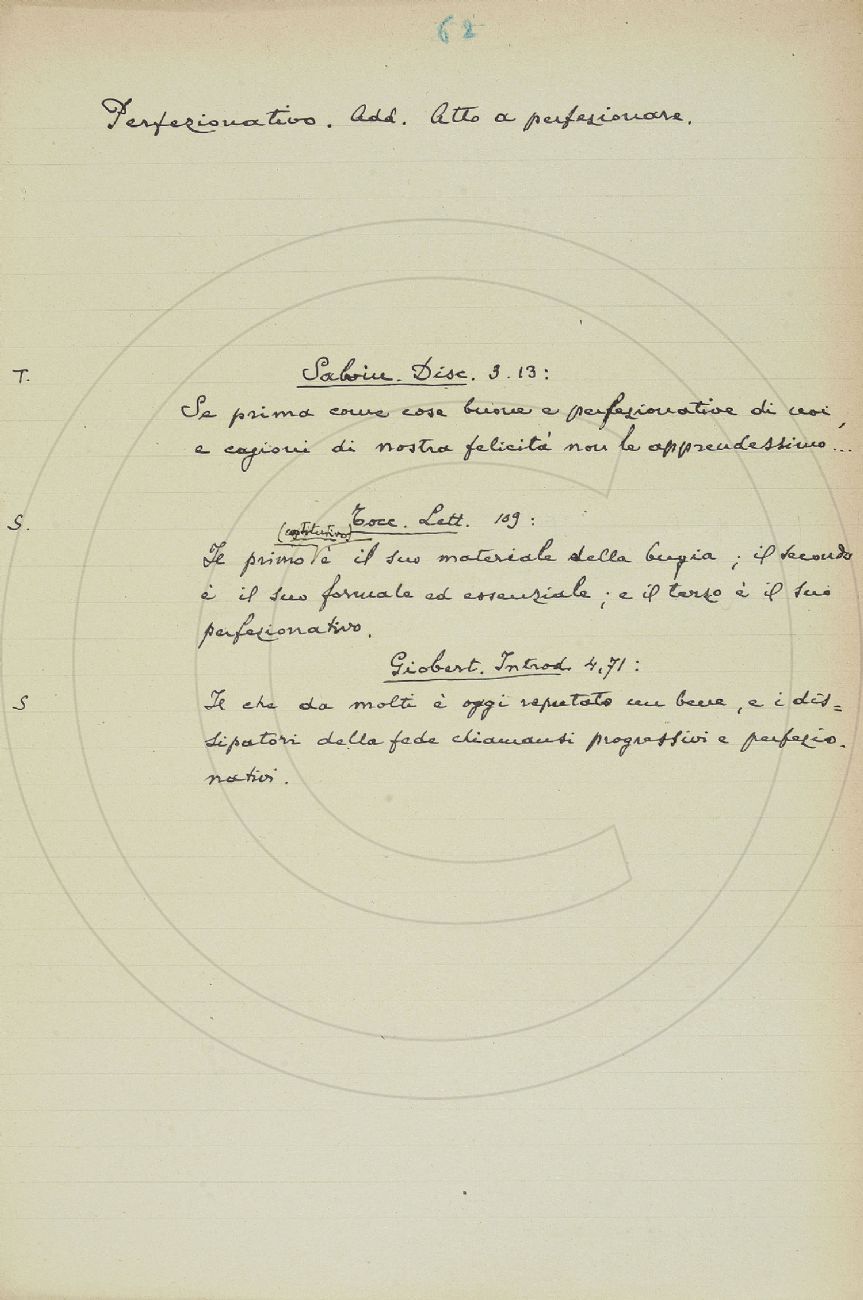 62
Perfezionativo. Add. Atto a perfezionare.
T. Salvin. Disc. 3.13:
Se prima come cose buone e perfezionative di noi,
e cagioni di nostra felicità non le apprendessimo...
S. Tocc. Lett. 109:
(costitutivo)
Il primo è il suo materiale della bugia; il secondo
è il suo formale ed essenziale; e il terzo è il suo
perfezionativo.
Giobert. Introd. 4,71:
S Il che da molti è oggi reputato un bene, e i dis=
sipatori della fede chiamansi progressivi e perfezio-
nativi.